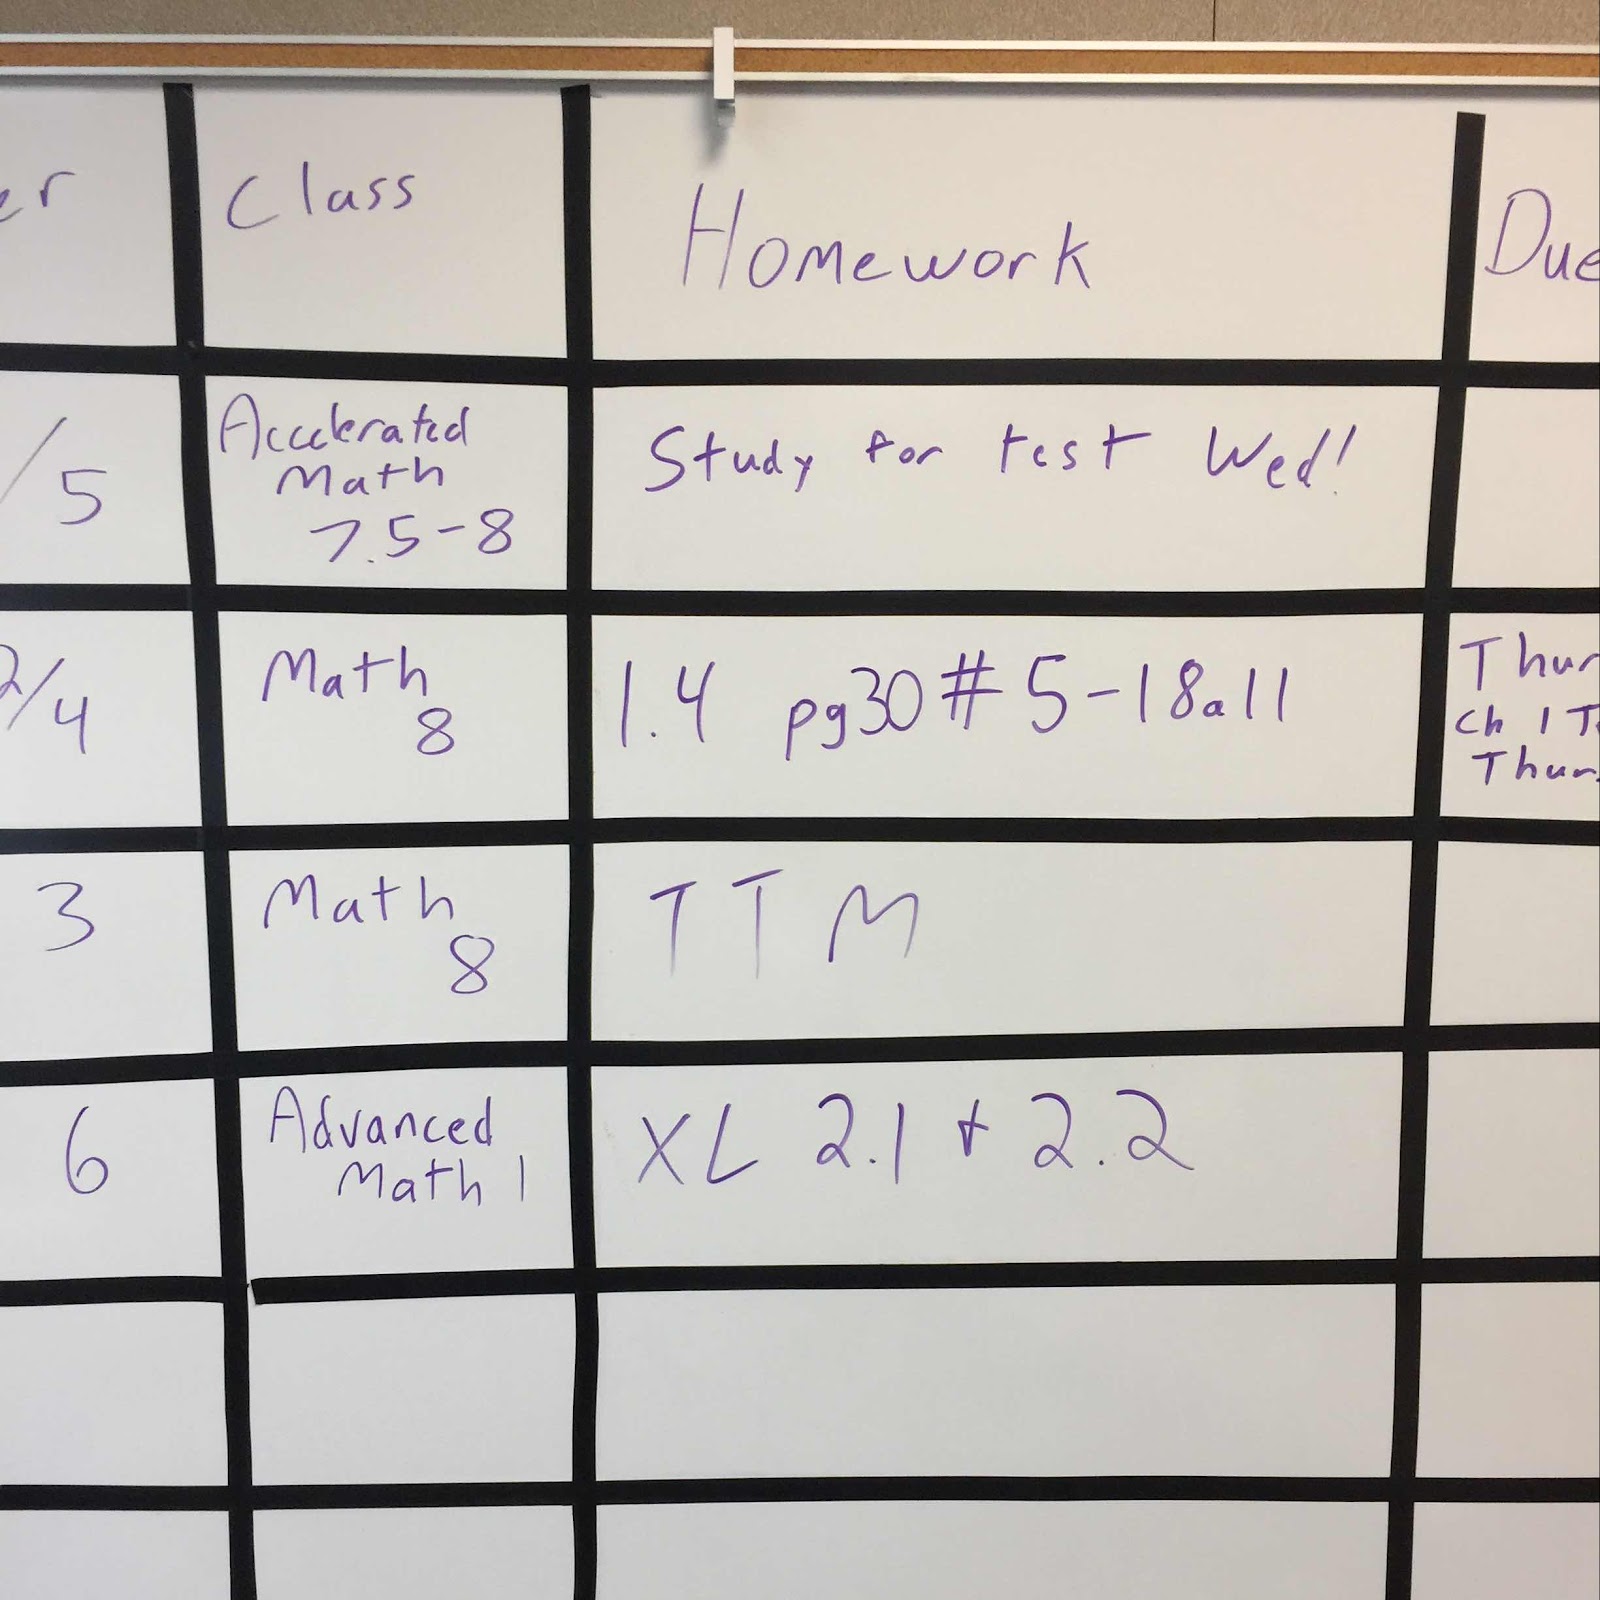 er Class Homework Due
/5 Accelerated Study for test Wed!
Math
7.5-8
2/4 Math 1.4 pg30 # 5-18 all Thur
8 Ch 1 T
Thur
3 Math TTM
8
6 Advanced XL 2.1 + 2.2
Math 1